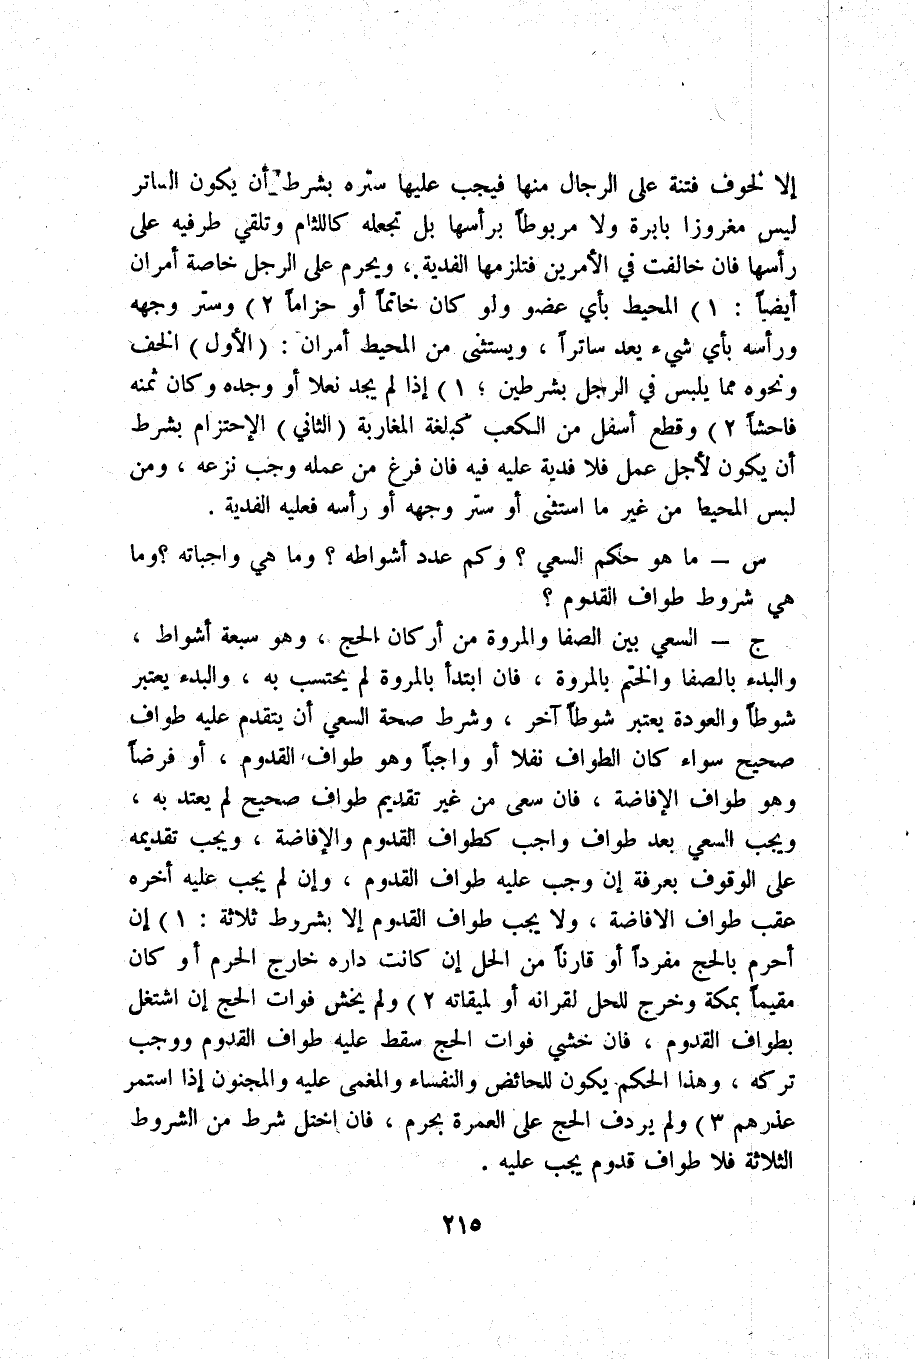 إلا لخوف فتنة على الرجال منها فيجب عليها ستره بشرط أن يكون الساتر
ليس مغروزا بابرة ولا مربوطاً برأسها بل تجعله كاللثام وتلقي طرفيه على
رأسها فان خالفت في الأمرين فتلزمها الفدية ، ويحرم على الرجل خاصة أمران
أيضاً : ١) المحيط بأي عضو ولو كان خاتماً أو حزاماً ٢) وستر وجهه
ورأسه بأي شيء يعد ساتراً ، ويستثنى من المحيط أمران : (الأول) الخف
ونحوه مما يلبس في الرجل بشرطين ؛ ١) إذا لم يجد نعلا أو وجده وكان ثمنه
فاحشاً ٢) وقطع أسفل من الكعب كبلغة المغاربة (الثاني) الإحتزام بشرط
أن يكون لأجل عمل فلا فدية عليه فيه فان فرغ من عمله وجب نزعه ، ومن
لبس المحيط من غير ما استثنى أو ستر وجهه أو رأسه فعليه الفدية .
س — ما هو حكم السعي ؟ وكم عدد أشواطه ؟ وما هي واجباته ؟ وما
هي شروط طواف القدوم ؟
ج — السعي بين الصفا والمروة من أركان الحج ، وهو سبعة أشواط ،
والبدء بالصفا والختم بالمروة ، فان ابتدأ بالمروة لم يحتسب به ، والبدء يعتبر
شوطاً والعودة يعتبر شوطاً آخر ، وشرط صحة السعي أن يتقدم عليه طواف
صحيح سواء كان الطواف نفلا أو واجباً وهو طواف القدوم ، أو فرضاً
وهو طواف الإفاضة ، فان سعى من غير تقديم طواف صحيح لم يعتد به ،
ويجب السعي بعد طواف واجب كطواف القدوم والإفاضة ، ويجب تقديمه
على الوقوف بعرفة إن وجب عليه طواف القدوم ، وإن لم يجب عليه أخره
عقب طواف الافاضة ، ولا يجب طواف القدوم إلا بشروط ثلاثة : ١) إن
أحرم بالحج مفرداً أو قارناً من الحل إن كانت داره خارج الحرم أو كان
مقيماً بمكة وخرج للحل لقرانه أو لميقاته ٢) ولم يخش فوات الحج إن اشتغل
بطواف القدوم ، فان خشي فوات الحج سقط عليه طواف القدوم ووجب
تركه ، وهذا الحكم يكون للحائض والنفساء والمغمى عليه والمجنون إذا استمر
عذرهم ٣) ولم يردف الحج على العمرة بحرم ، فان اختل شرط من الشروط
الثلاثة فلا طواف قدوم يجب عليه .
٢١٥